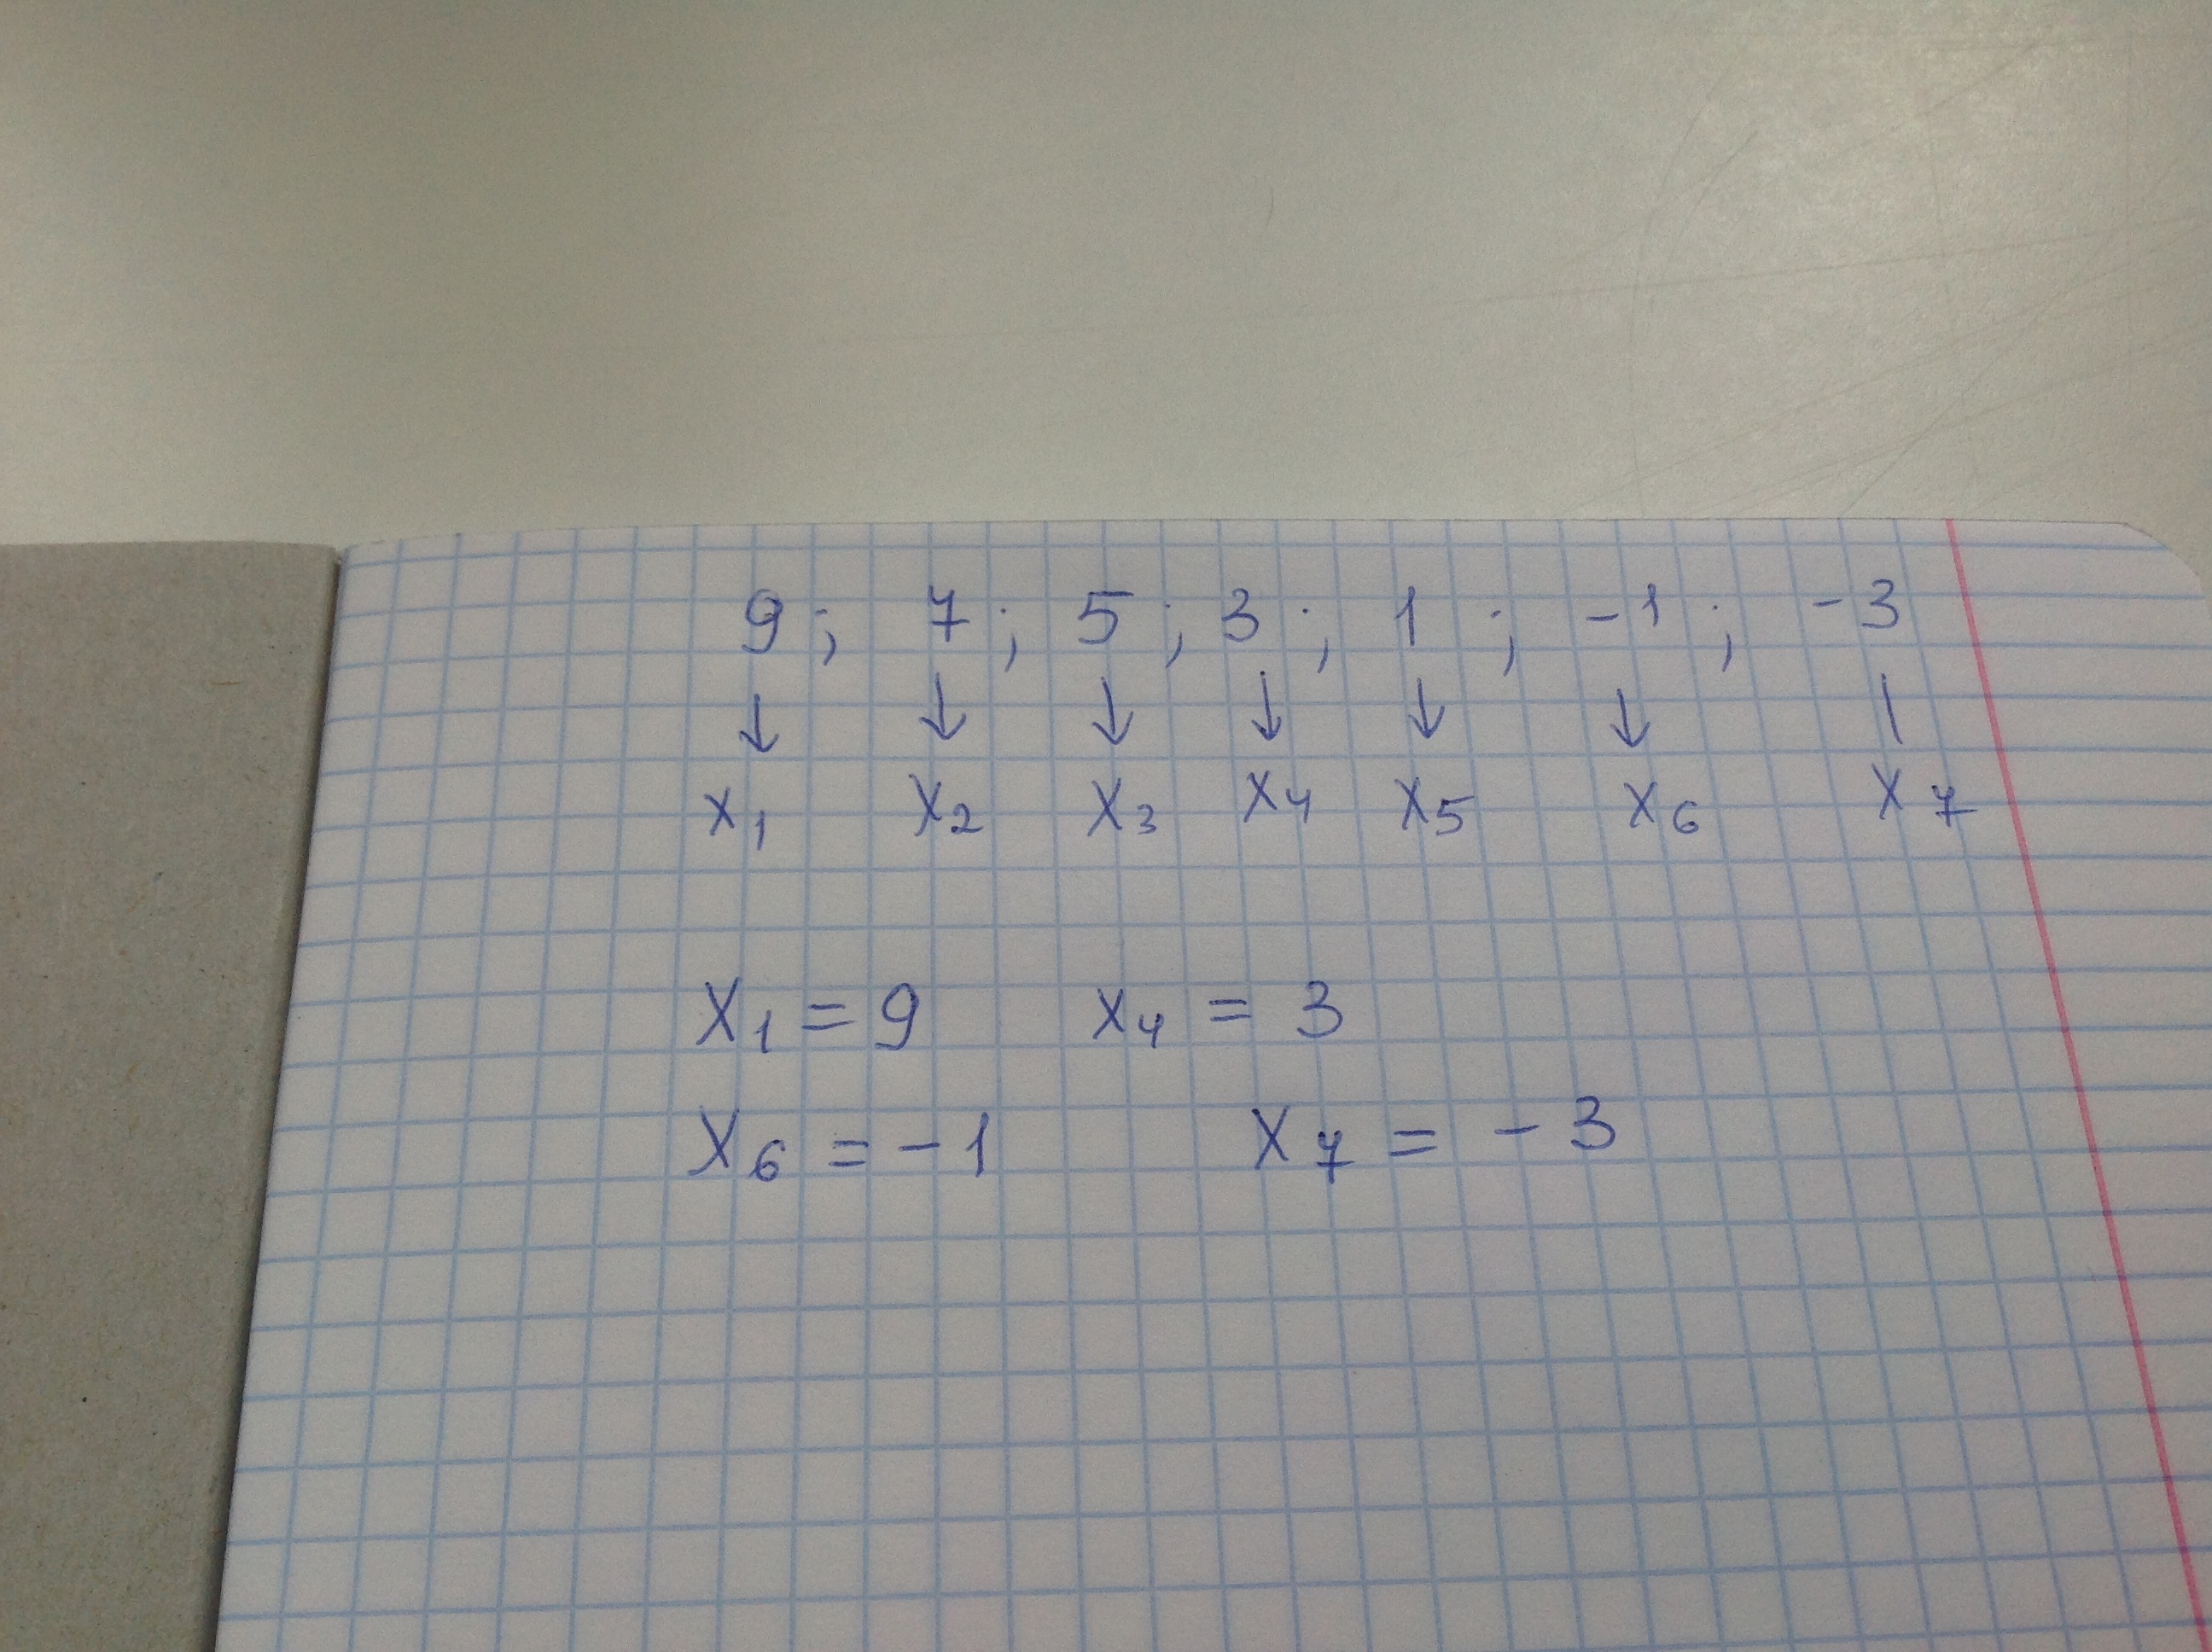 9; 7; 5; 3; 1; -1; -3
↓ ↓ ↓ ↓ ↓ ↓ |
x₁ x₂ x₃ x₄ x₅ x₆ x₇
x₁ = 9 x₄ = 3
x₆ = -1 x₇ = -3